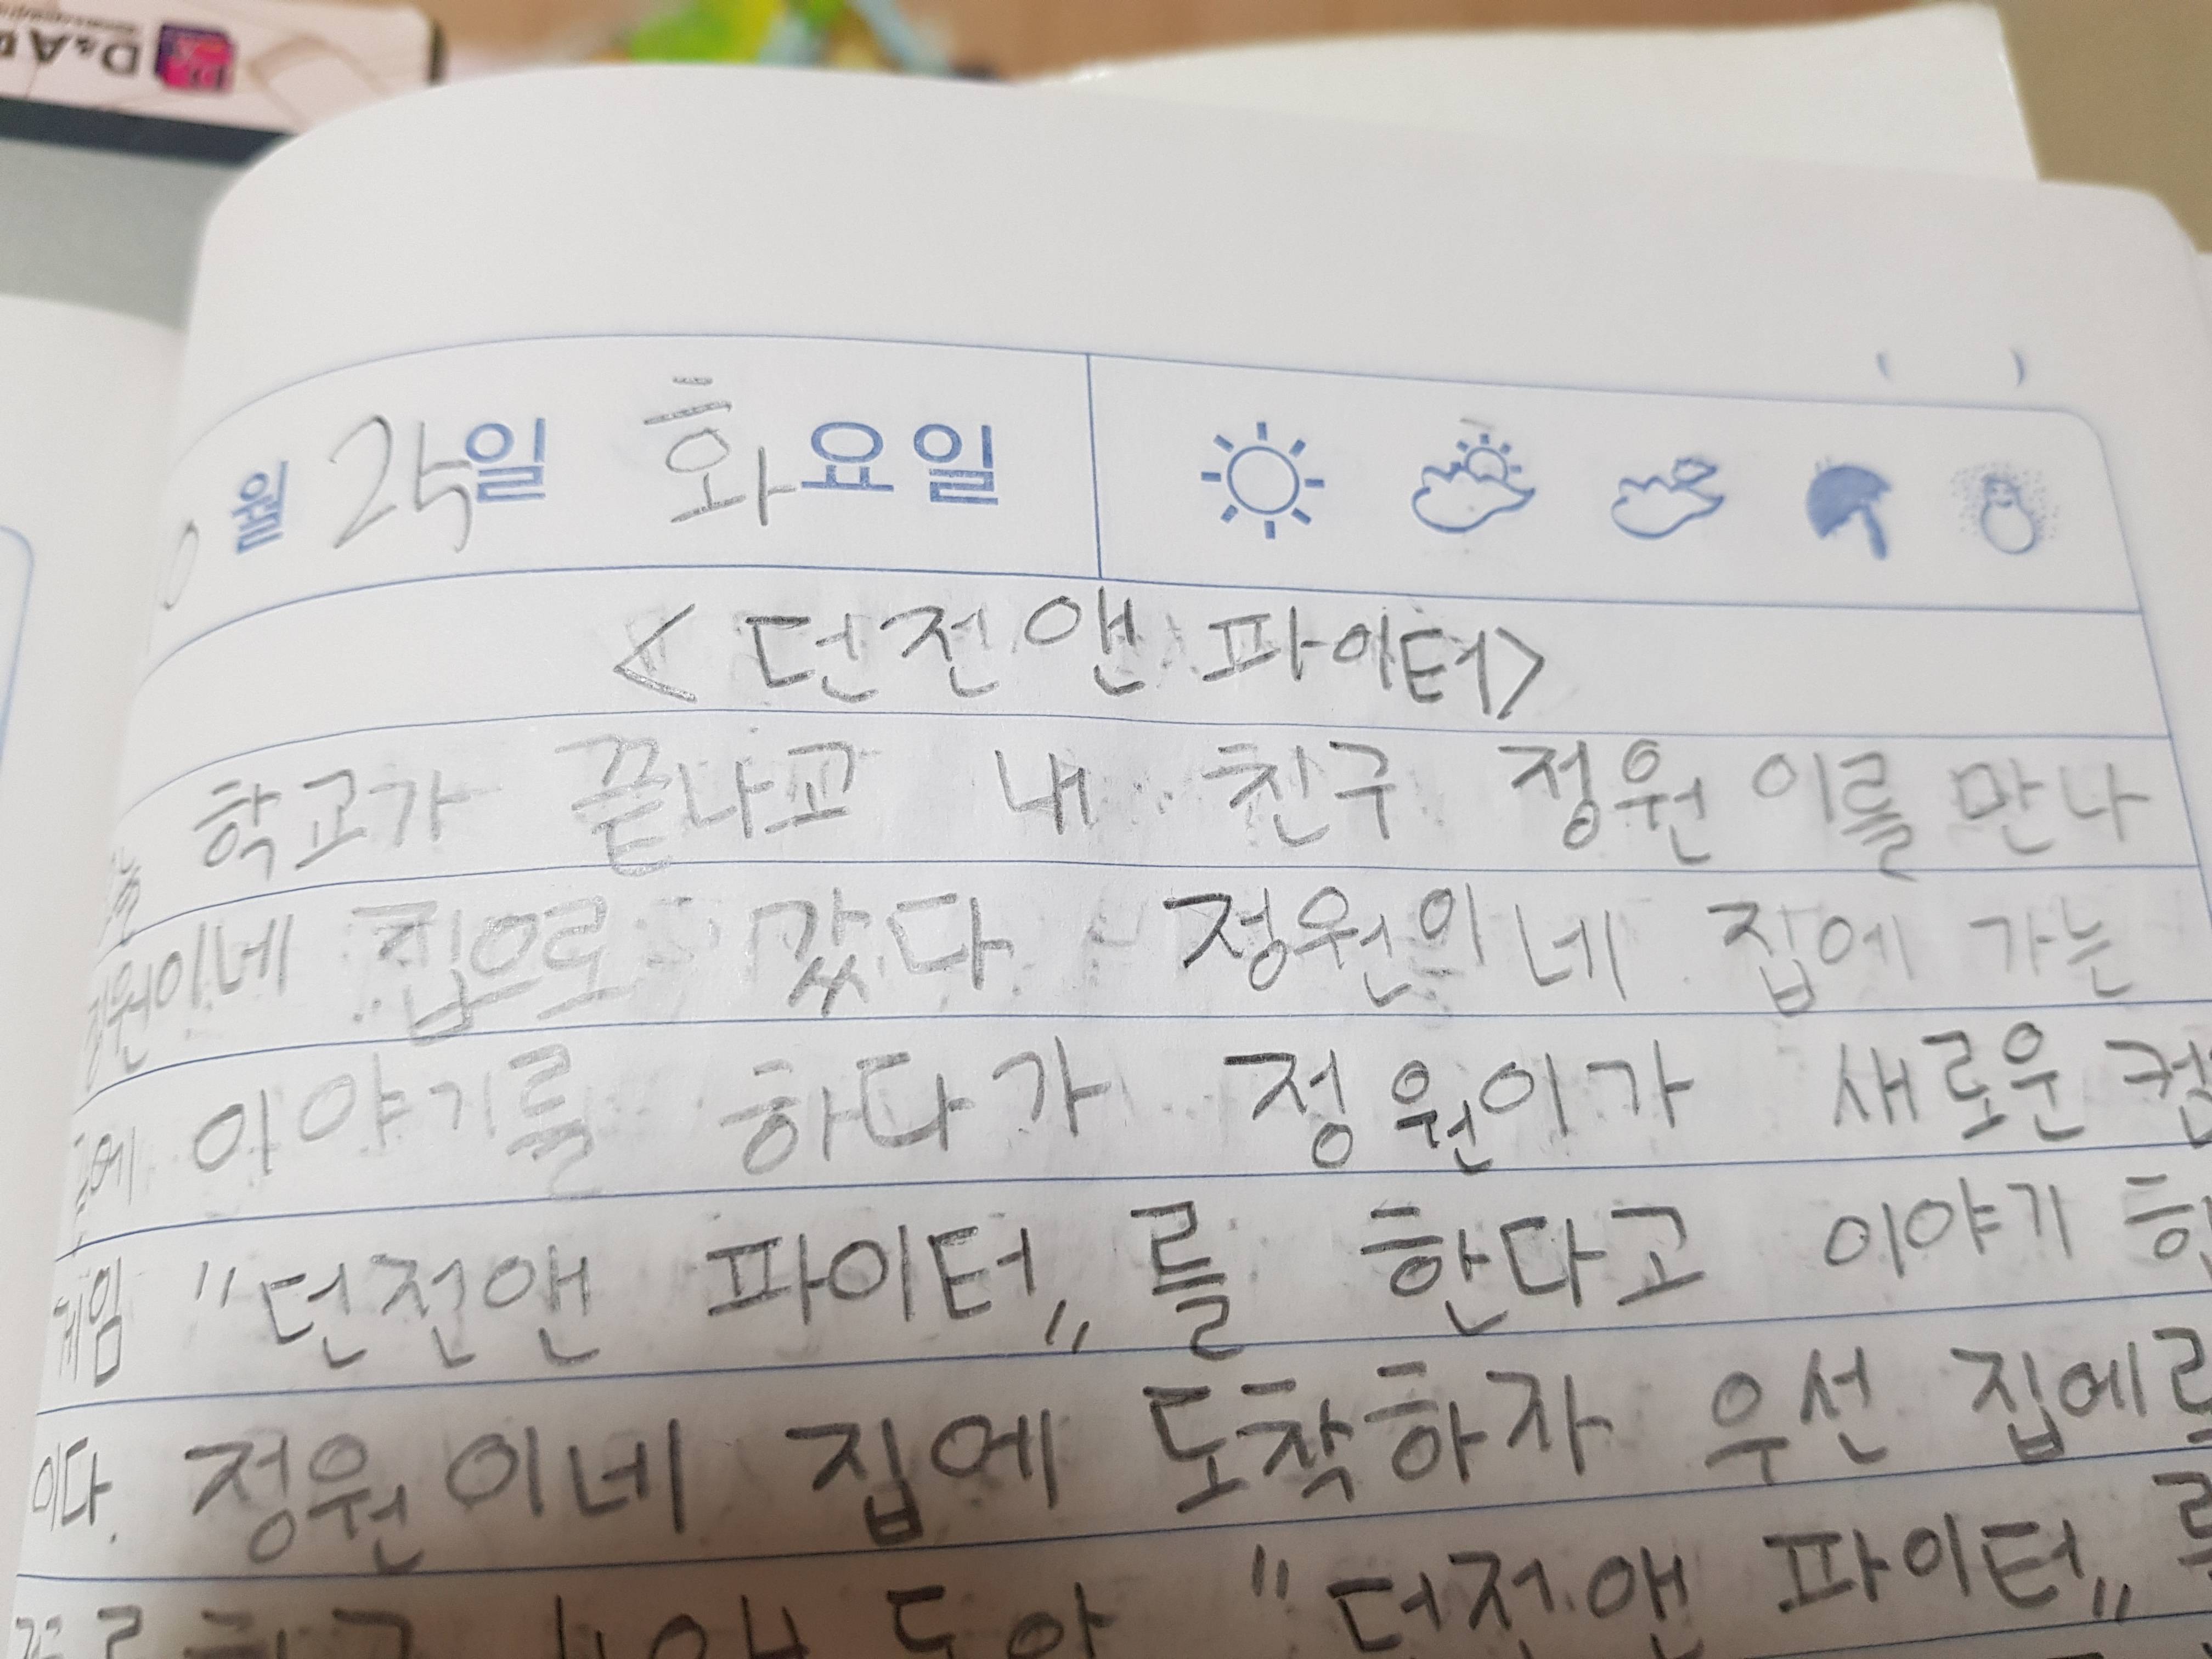 D&A
월 25일 화요일
<던전앤 파이터>
학교가 끝나고 내 친구 정원이를 만나
정원이네 집으로 갔다 정원이네 집에 가는
이야기를 하다가 정원이가 새로운
게임 "던전앤 파이터"를 한다고 이야기
이다. 정원이네 집에 도착하자 우선 집에
"던전앤 파이터"